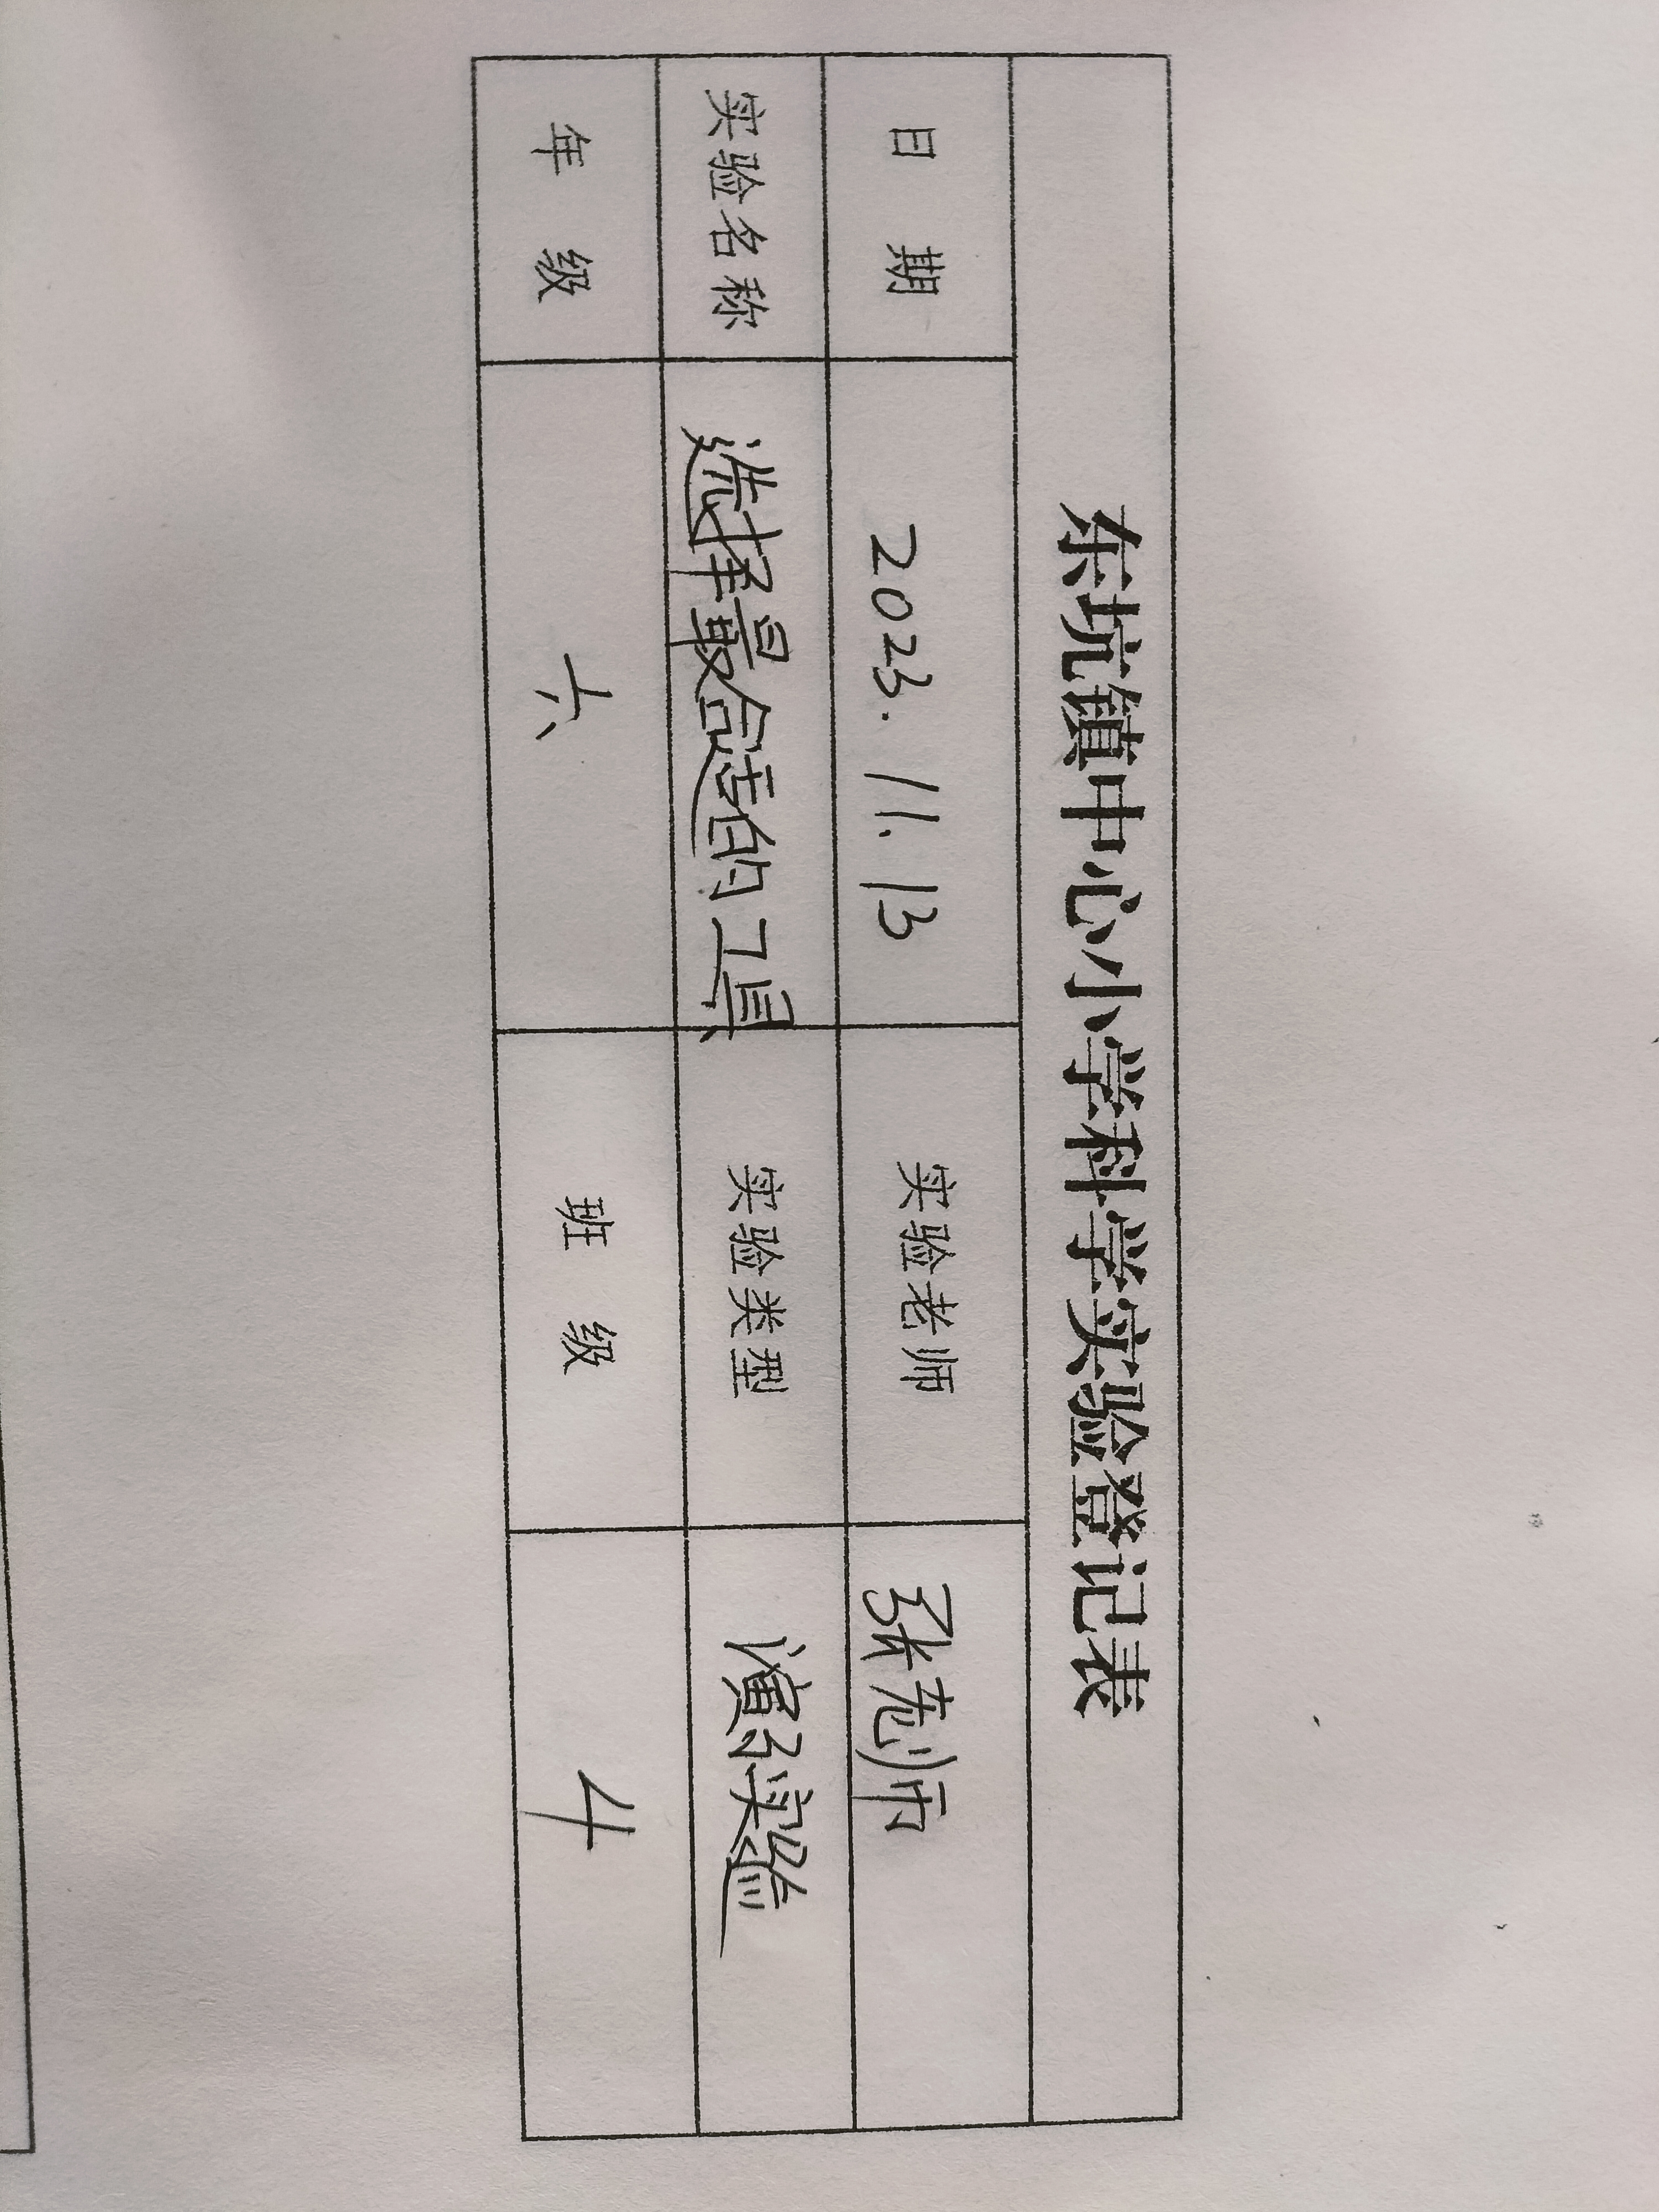 东坑镇中心小学科学实验登记表
日 期 2023.11.13 实验老师 张老师
实验名称 选择最合适的工具 实验类型 演示实验
年 级 六 班 级 4